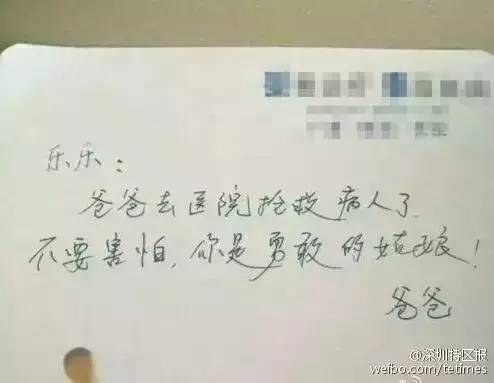 乐乐:
爸爸去医院抢救病人了.
不要害怕,你是勇敢的姑娘!
爸爸
@深圳特区报
weibo.com/tetimes